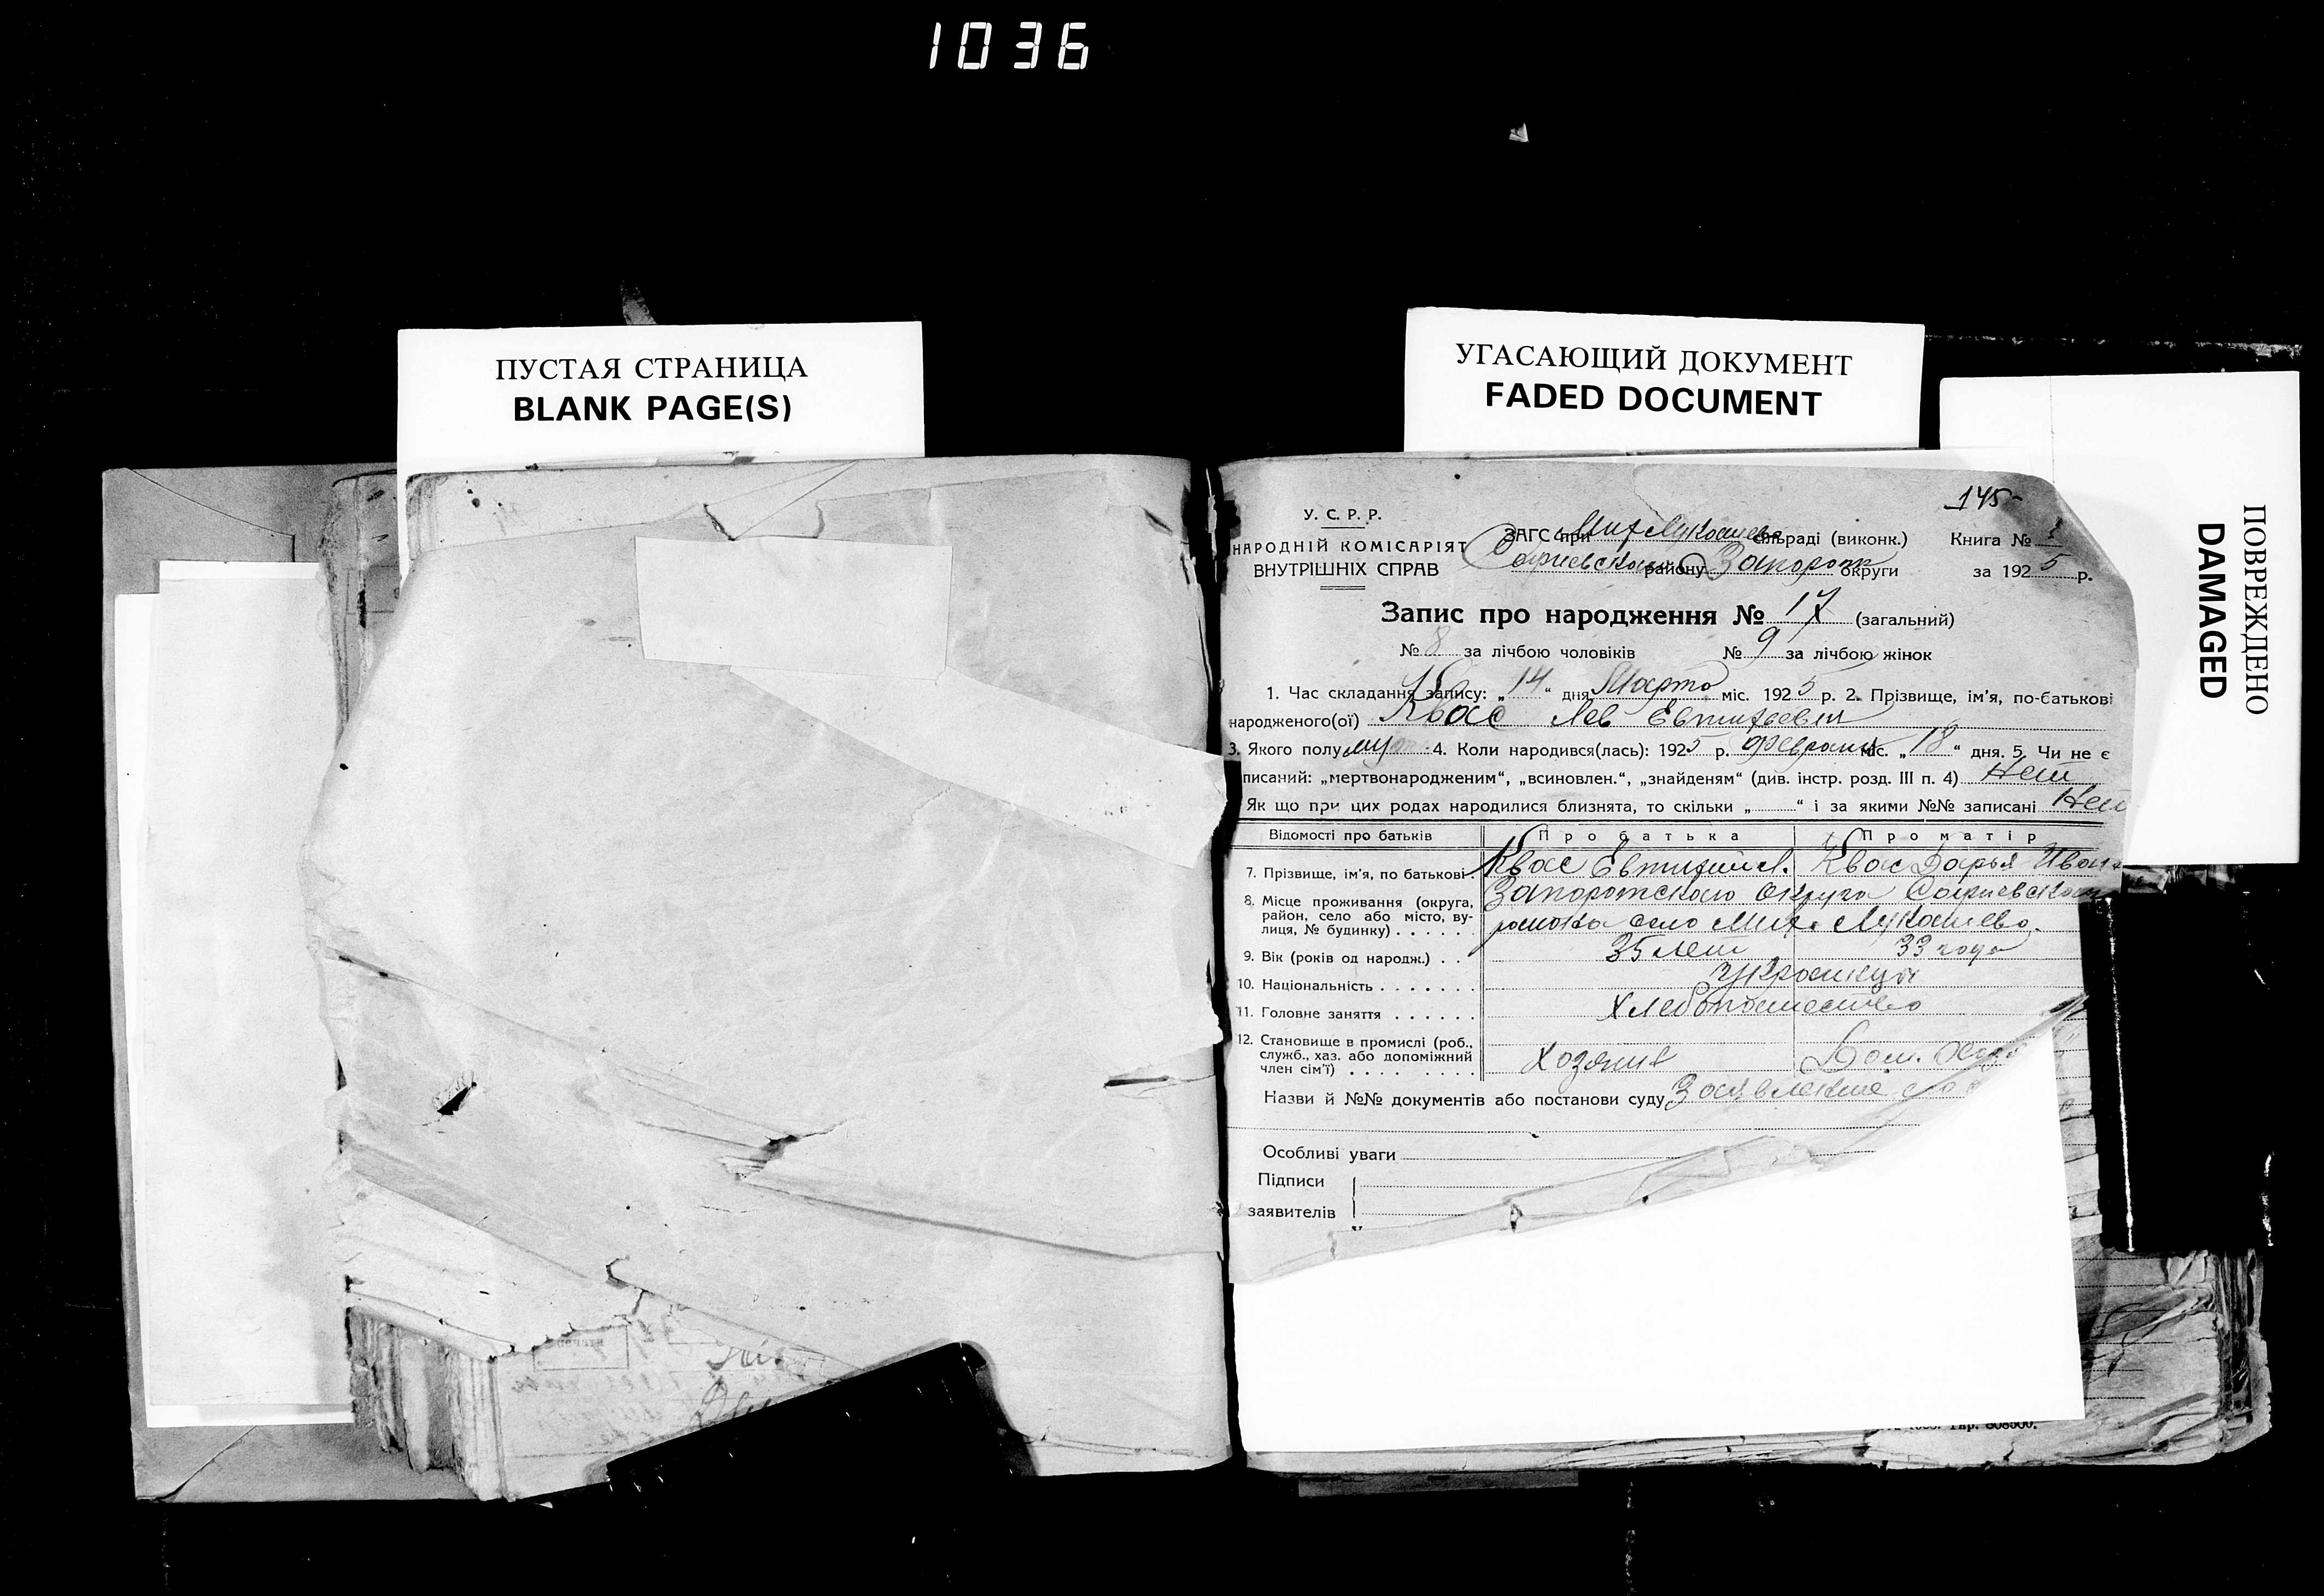 1036
ПУСТАЯ СТРАНИЦА
BLANK PAGE(S)
УГАСАЮЩИЙ ДОКУМЕНТ
FADED DOCUMENT
ПОВРЕЖДЕНО
DAMAGED
145
У. С. Р. Р.
НАРОДНІЙ КОМІСАРІЯТ
ВНУТРІШНІХ СПРАВ
ЗАГС при Мих Лукашево сільраді (виконк.) Книга №
Софиевского району Запорож округи за 1925 р.
Запис про народження № 17 (загальний)
№ 8 за лічбою чоловіків № 9 за лічбою жінок
1. Час складання запису: „14“ дня Марта міс. 1925 р. 2. Прізвище, ім'я, по-батькові
народженого(ої) Квас Лев Евтихиевич
3. Якого полу муж 4. Коли народився(лась): 1925 р. Февраля міс. „18“ дня. 5. Чи не є
писаний: „мертвонародженим“, „всиновлен.“, „знайденям“ (див. інстр. розд. III п. 4) Нет
Як що при цих родах народилися близнята, то скільки „ “ і за якими №№ записані Нет
Відомості про батьків Про батька Про матір
7. Прізвище, ім'я, по батькові. Квас Евтихий Квас Дарья Иван
8. Місце проживання (округа, район, село або місто, вулиця, № будинку) Запорожского округа Софиевского
района село Мих. Лукашево.
9. Вік (років од народж.) 35 лет 33 года
10. Національність украинцы
11. Головне заняття Хлебопашество
12. Становище в промислі (роб., служб., хаз. або допоміжний член сім'ї) Хозяин Дом.
Назви й №№ документів або постанови суду Заявление
Особливі уваги
Підписи
заявителів